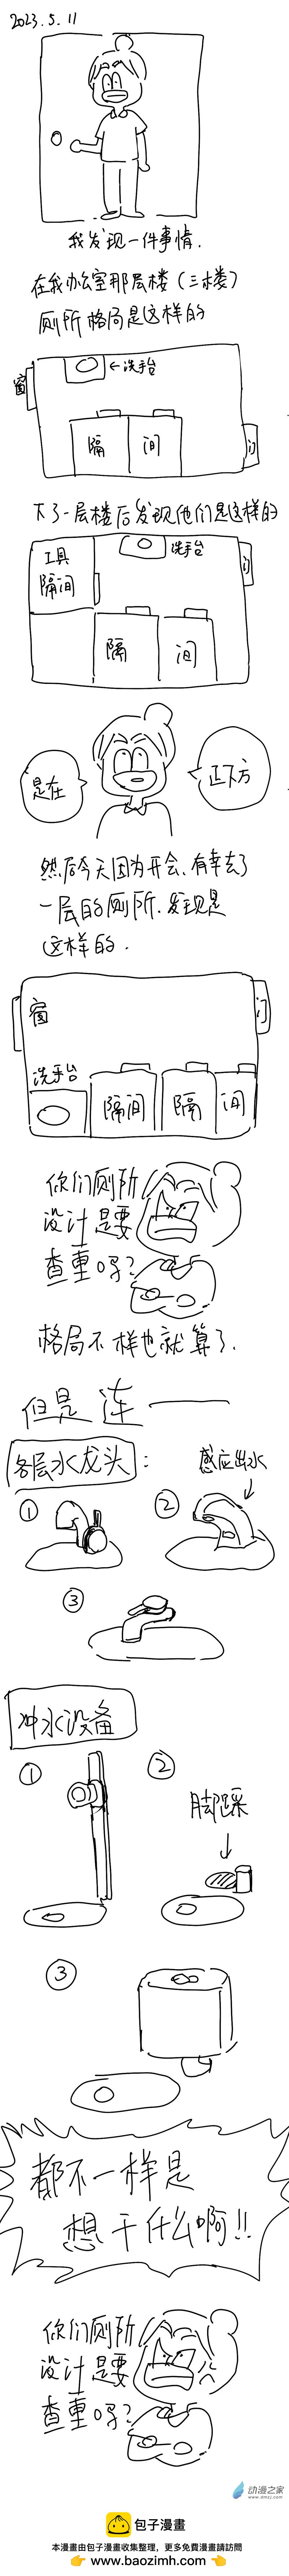 2023.5.11
我发现一件事情.
在我办公室那层楼（三楼）
厕所格局是这样的
窗
←洗手台
隔
间
门
下了一层楼后发现他们是这样的
工具
隔间
洗手台
门
隔
间
是在
正下方
然后今天因为开会、有幸去了
一层的厕所.发现是
这样的.
窗
门
洗手台
隔间
隔
间
你们厕所
设计是要
查重吗?
格局不一样也就算了.
但是 连——
各层水龙头:
感应出水
①
②
③
冲水设备
①
②
脚踩
③
都不一样是
想干什么啊!!
你们厕所
设计是要
查重吗?
动漫之家
www.dmzj.com
包子漫畫
本漫畫由包子漫畫收集整理，更多免費漫畫請訪問
www.baozimh.com